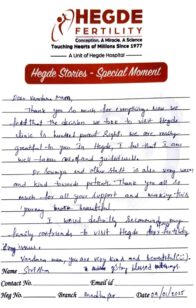 HEGDE
FERTILITY
Conception. A Miracle. A Science
Touching Hearts of Millions Since 1977
A Unit of Hegde Hospital
Hegde Stories - Special Moment
Dear Vandana Mam,
Thank you so much for everything. Now we
felt that the decision we take to visit Hegde
clinic is hundred percent Right. we are really
grateful to you In Hegde, I felt that I am
well taken care of and guided well.
Dr Sowmya and other staff is also very warm
and kind towards patient. Thank you all so
much for all your support and making this
journey more beautiful
I would definitely Recommending my
family and friends to visit Hegde for
Vandana mam, you are very kind and beautiful
Name
stay blessed always.
Contact No. Email id
Reg No. Branch Date